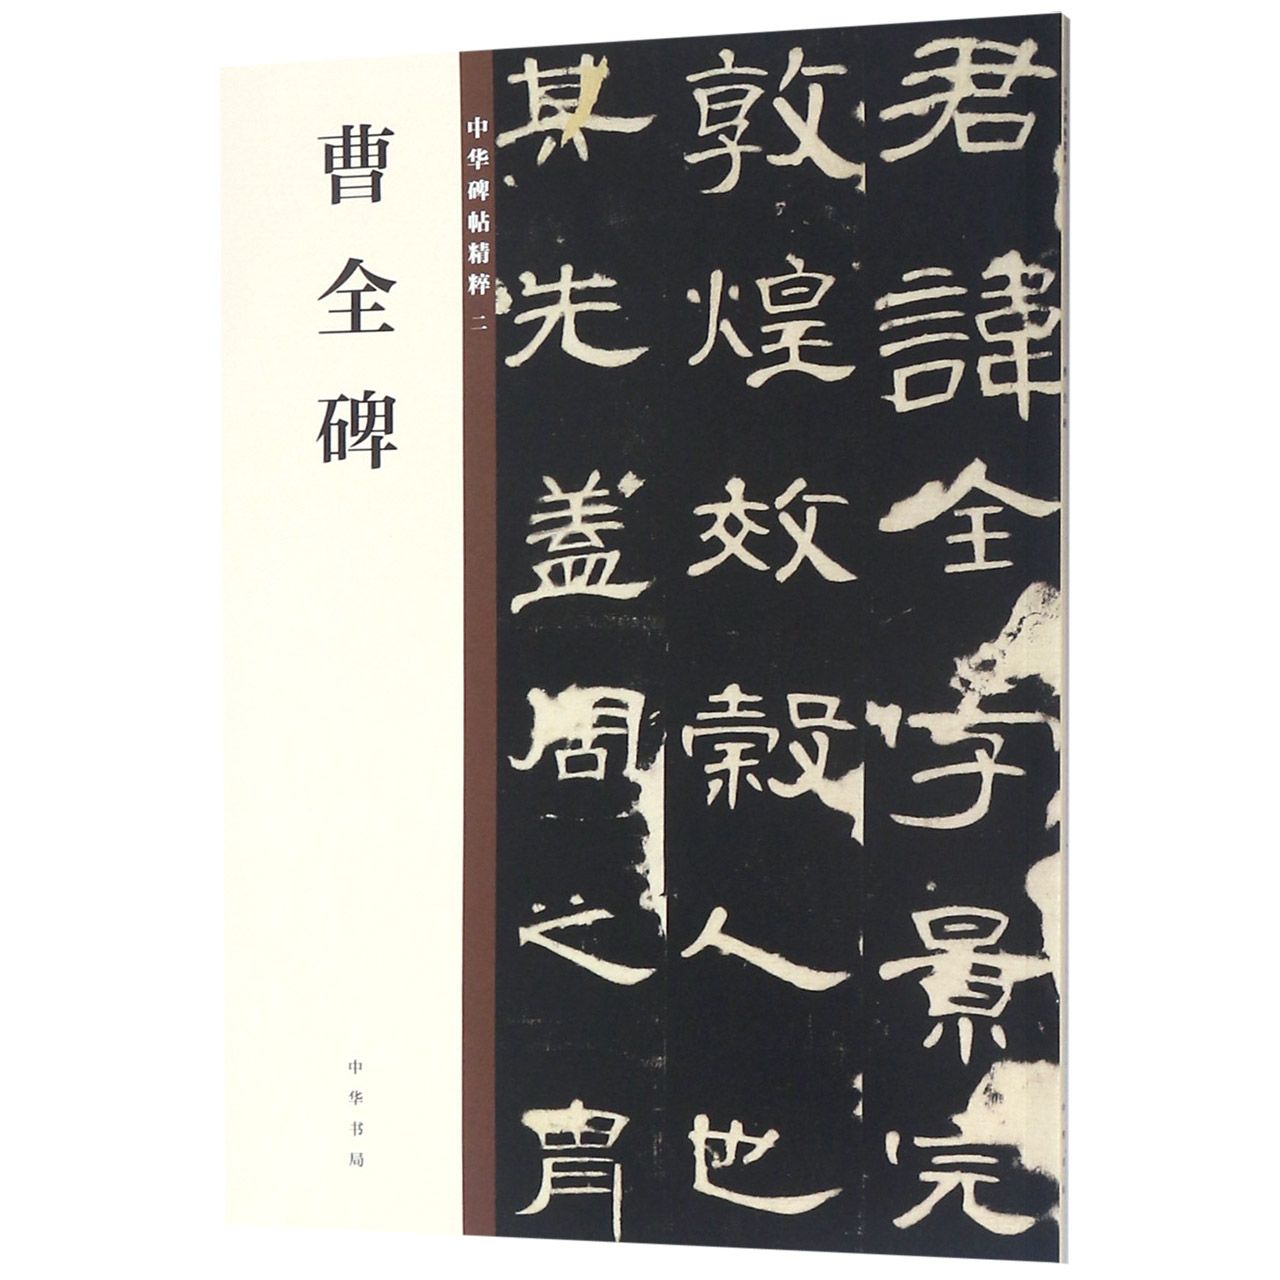 君諱全字景完
敦煌效穀人也
其先蓋周之胄
中华碑帖精粹 二
曹全碑
中华书局